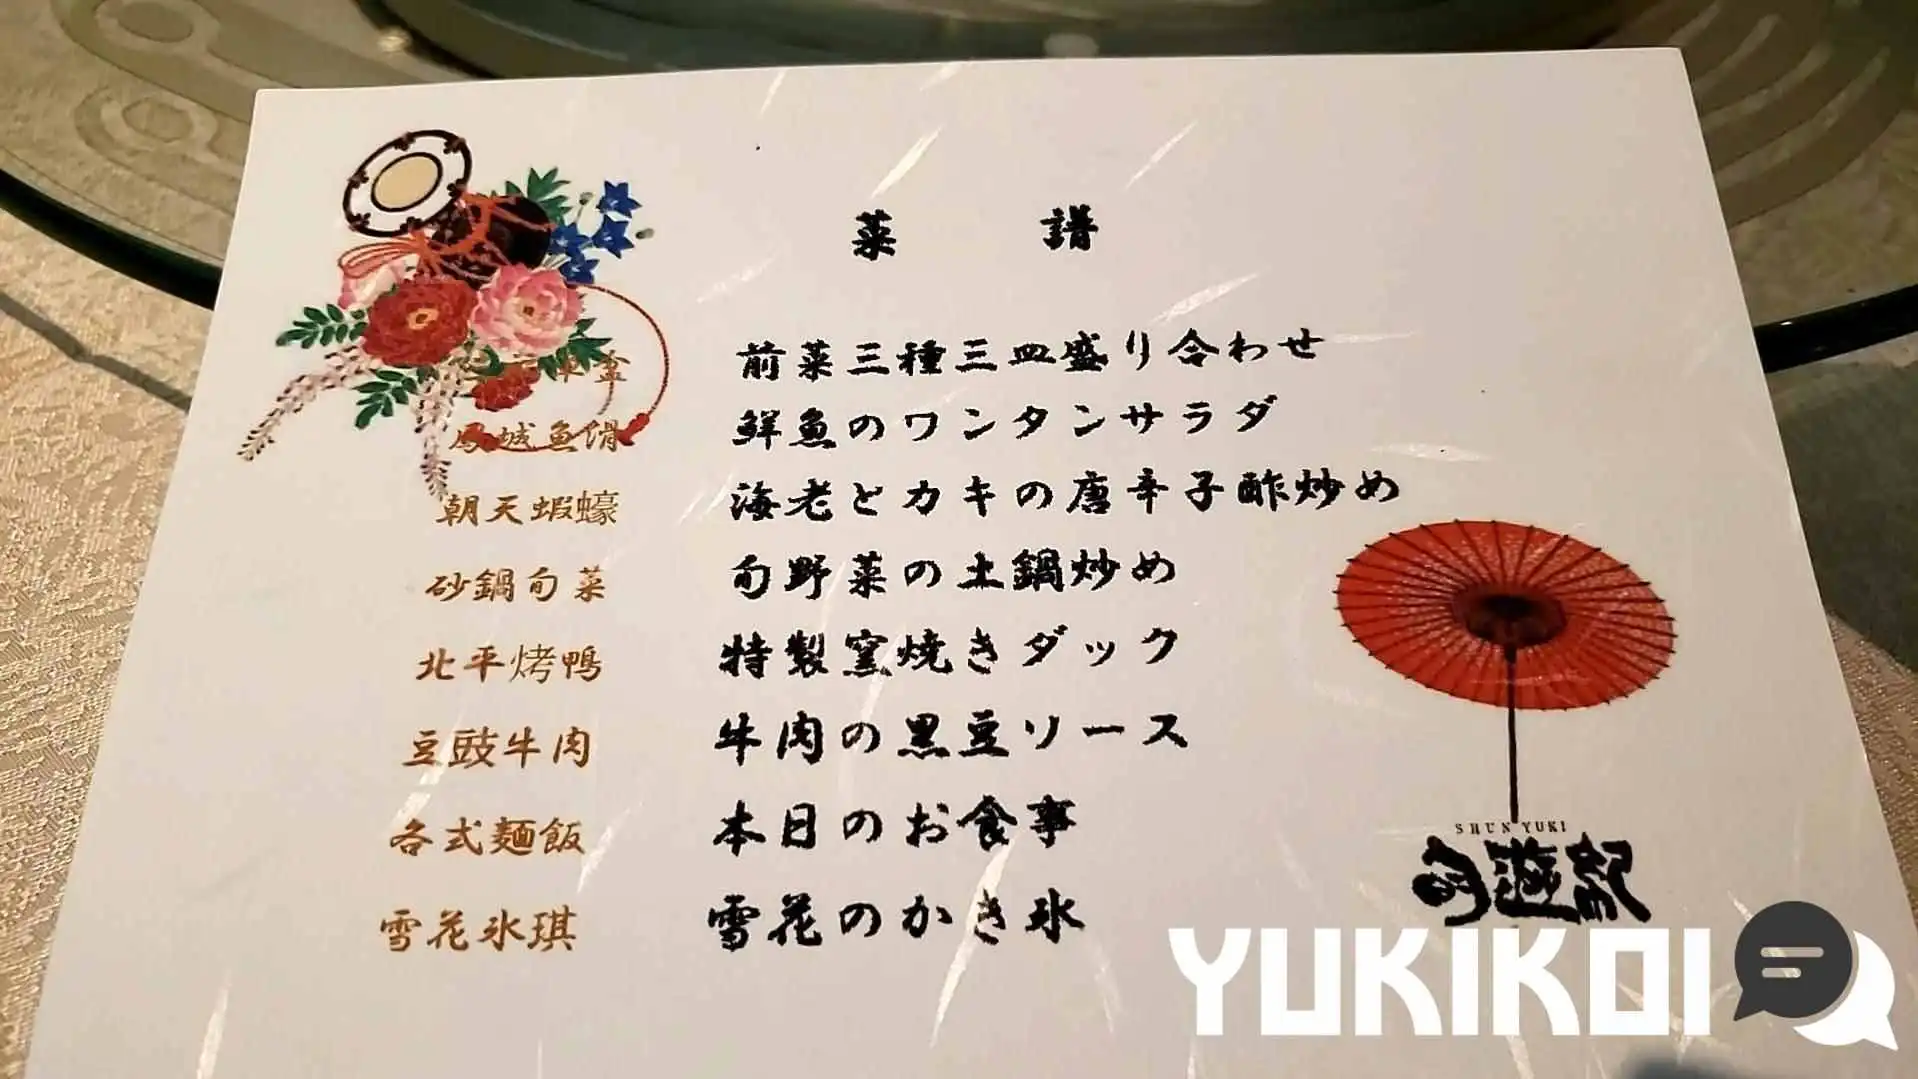 菜 譜
前菜三種三皿盛り合わせ
鳳城魚滑 鮮魚のワンタンサラダ
朝天蝦蠔 海老とカキの唐辛子酢炒め
砂鍋旬菜 旬野菜の土鍋炒め
北平烤鴨 特製窯焼きダック
豆豉牛肉 牛肉の黒豆ソース
各式麺飯 本日のお食事
雪花氷琪 雪花のかき氷
SHUN YUKI
旬遊紀
YUKIKOI